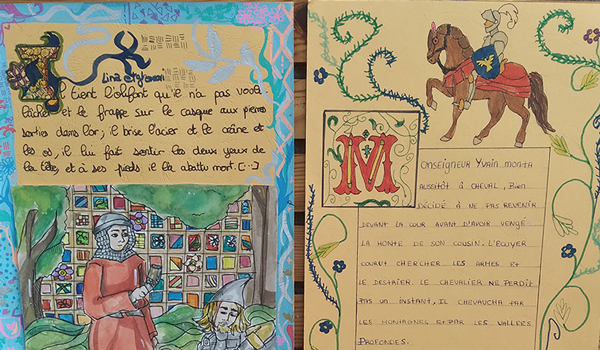 Il tient l'olifant qu'il n'a pas voulu
lâcher et le frappe sur le casque aux pierres
serties dans l'or; il brise l'acier et le crâne et
les os; il lui fait sortir les deux yeux de
la tête et à ses pieds il l'a abattu mort. [...]
MONSEIGNEUR YVAIN MONTA
AUSSITÔT À CHEVAL, BIEN
DÉCIDÉ À NE PAS REVENIR
DEVANT LA COUR AVANT D'AVOIR VENGÉ
LA HONTE DE SON COUSIN. L'ÉCUYER
COURUT CHERCHER LES ARMES ET
LE DESTRIER. LE CHEVALIER NE PERDIT
PAS UN INSTANT, IL CHEVAUCHA PAR
LES MONTAGNES ET PAR LES VALLÉES
PROFONDES.